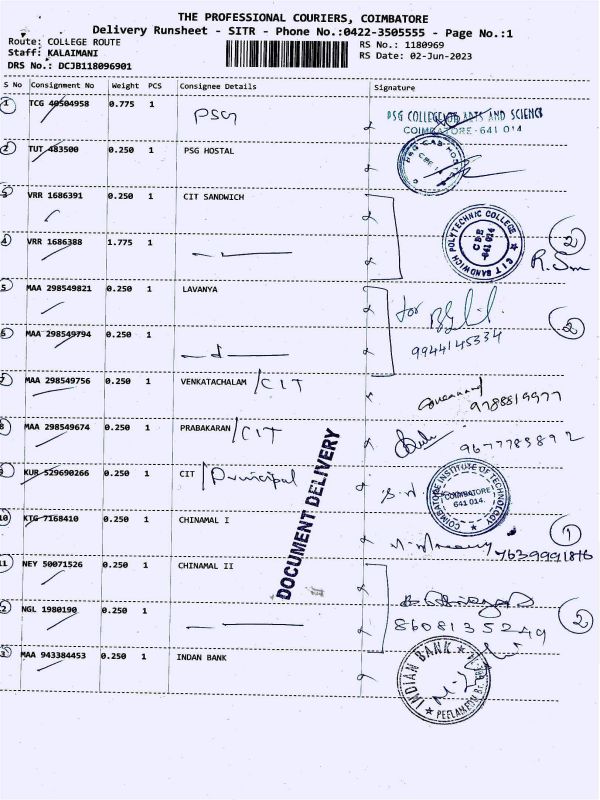 THE PROFESSIONAL COURIERS, COIMBATORE
Delivery Runsheet - SITR - Phone No.:0422-3505555 - Page No.:1
Route: COLLEGE ROUTE
RS No.: 1180969
Staff: KALAIMANI
RS Date: 02-Jun-2023
DRS No.: DCJB118096901
S No Consignment No Weight PCS Consignee Details Signature
1 TCG 40504958 0.775 1 PSG
PSG COLLEGE OF ARTS AND SCIENCE
COIMBATORE - 641 014
2 TUT 483500 0.250 1 PSG HOSTAL
3 VRR 1686391 0.250 1 CIT SANDWICH
CIT SANDWICH POLYTECHNIC COLLEGE
CBE
641 014
2
4 VRR 1686388 1.775 1
5 MAA 298549821 0.250 1 LAVANYA
for
2
9944145334
6 MAA 298549794 0.250 1
7 MAA 298549756 0.250 1 VENKATACHALAM / CIT
9788819977
8 MAA 298549674 0.250 1 PRABAKARAN / CIT
9677785892
9 KUR 529690266 0.250 1 CIT / Principal
COIMBATORE INSTITUTE OF TECHNOLOGY
COIMBATORE
641 014.
DOCUMENT DELIVERY
10 KTG 7168410 0.250 1 CHINAMAL I
1
7639991876
11 NEY 50071526 0.250 1 CHINAMAL II
12 NGL 1980190 0.250 1
8608135249
2
13 MAA 943384453 0.250 1 INDAN BANK
INDIAN BANK